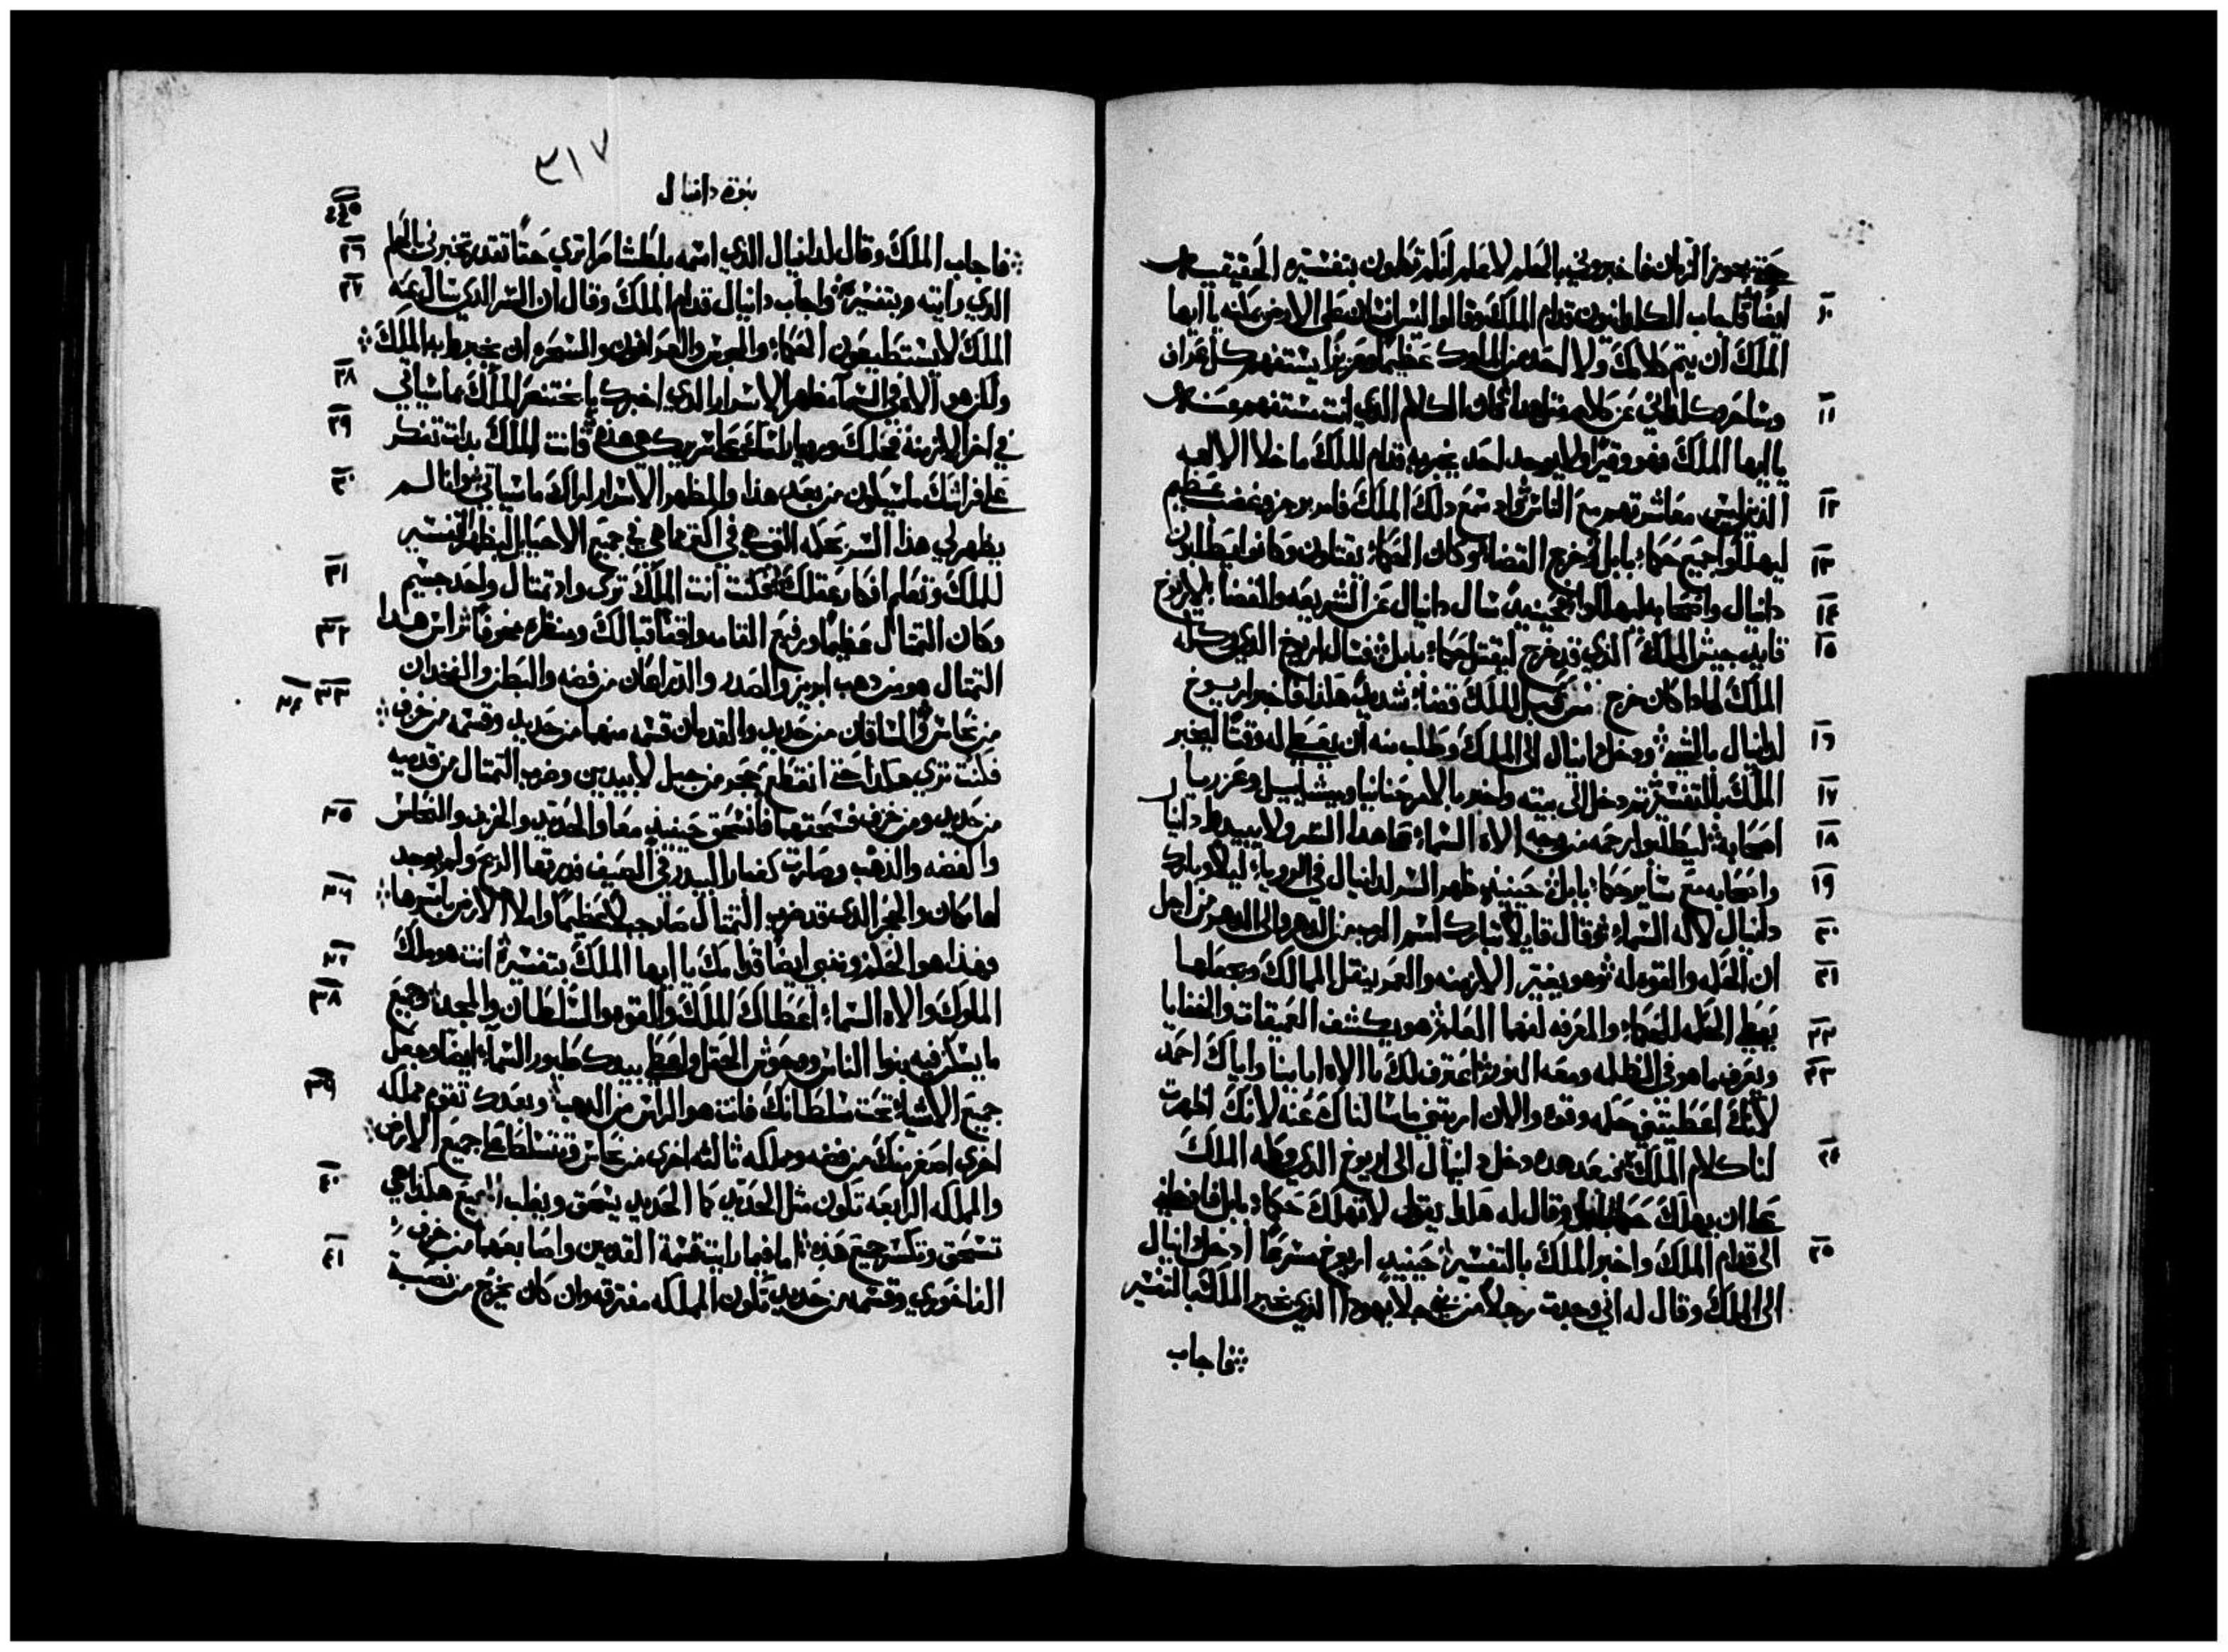 حتي يجوز الزمان فاخبروني بالحلم لاعلم انكم تحلمون بتفسيره الحقيقي
١٠ ايضًا فاجاب الكلدانيون قدام الملك وقالوا ليس انسان علي الارض يمكنه يا ايها
الملك ان يتم كلامك ولا احد من الملوك عظيمًا وعزيزًا يستفهم كل عراف
١١ وساحر وكلداني عن كلام مثل هذا فان الكلام الذي انت مستفهم
يا ايها الملك فهو وقيرًا ولا يوجد احد يخبر به قدام الملك ما خلا الالهه
١٢ الذين ليس معاشرتهم مع الناس فلما سمع ذلك الملك فامر برجز وغضب عظيم
١٣ ليهلكوا جميع حكماء بابل فخرج القضاء وكان الحكماء يقتلون وكانوا يطلبون
١٤ دانيال واصحابه ليهلكوا حينيدٍ سال دانيال عن الشريعه والقضاء لاريوخ
١٥ قايد جيش الملك الذي قد خرج ليقتل حكماء بابل فسال اريوخ الذي وكله
الملك لماذا كان خرج من قبل الملك قضاء شديد هكذا فاخبر اريوخ
١٦ لدانيال بالسر ودخل دانيال الى الملك وطلب منه ان يعطي له وقتًا ليخبر
١٧ الملك بالتفسير ثم دخل الى بيته واخبر بالامر حنانيا وميشاييل وعزريا
١٨ اصحابه ليطلبوا رحمه من وجه الاه السماء عن هذا السر ولا يبيد دانيال
١٩ واصحابه مع ساير حكماء بابل حينيدٍ ظهر السر لدانيال في الرويا ليلًا وبارك
٢٠ دانيال لاله السماء وقال قايلًا تبارك اسم الرب من الدهر والى الدهر من اجل
٢١ ان الحكمه والقوه له وهو يغير الازمنه والعمر ينقل الممالك ويجعلها
٢٢ يعطي الحكمه للحكماء والمعرفه لفهما العلم هو يكشف العميقات والخفايا
٢٣ ويعرف ما هو في الظلمه ومعه النور اعترف لك يا الاه اباينا واياك احمد
لانك اعطيتني حكمه وقوه والان اريتني ما سالناك عنه لانك اظهرت
٢٤ لنا كلام الملك من بعد هذه دخل دانيال الى اريوخ الذي وكله الملك
على ان يهلك حكماء بابل وقال له هكذا يقول لا تهلك حكماء بابل
٢٥ الى قدام الملك واخبر الملك بالتفسير حينيدٍ اريوخ مسرعًا ادخل دانيال
الى الملك وقال له اني وجدت رجلًا من بني جلا يهوذا الذي يخبر الملك بالتفسير
فاجاب
٣١٧
نبوة دانيال
٤٤٥
٢٦ فاجاب الملك وقال لدانيال الذي اسمه بلطشاصر اترى حقًا تقدر تخبرني بالحلم
٢٧ الذي رايته وبتفسيره واجاب دانيال قدام الملك وقال ان السر الذي سال عنه
الملك لا يستطيعون الحكماء والمجوس والعرافون والسحره ان يخبروا به الملك
٢٨ ولكن هو الاه في السما مظهر الاسرار الذي اخبرك يا بختنصر الملك بما سياتي
٢٩ في اخر الازمنه فحلمك وروياراسك على سريرك هي هذه فانت الملك بدات تفكر
٣٠ على فراشك ما سيكون من بعد هذا والمظهر الاسرار اراك ما سياتي وانا لم
يظهر لي هذا السر بحكمه التي هي في اكثر مما هي في جميع الاحيا بل ليظهر التفسير
٣١ للملك وتعلم افكار عقلك فكنت انت الملك ترى واذ تمثال واحد جسيم
٣٢ وكان التمثال عظيمًا ورفيع القامه واقفًا قبالك ومنظره مخوفًا راس هدا
٣٣ ٣٤ التمثال هو من دهب ابريز والصدر والذراعان من فضه والبطن والفخدان
من نحاس والساقان من حديد والقدمان قسمه منهما من حديد وقسمه من خزف
فكنت ترى هكذا حتى انقطع حجر من جبل لا بيدين وضرب التمثال من قدميه
٣٥ من حديد ومن خزف فسحقهما فانسحق حينيدٍ معًا والحديد والخزف والنحاس
والفضه والذهب وصارت كغبار البيدر في الصيف فدرتها الريح ولم يوجد
٣٦ لها مكان والحجر الذي قد ضرب التمثال صار جبلًا عظيمًا واملا الارض باسرها
٣٧ فهذا هو الحلم وننبي ايضًا قدامك يا ايها الملك بتفسيره انت هو ملك
٣٨ الملوك والاه السماء اعطاك الملك والقوه والسلطان والمجد وجميع
ما يسكن فيه بنوا الناس ووحوش الحقل واعطى بيدك طيور السماء ايضًا وجعل
٣٩ جميع الاشياء تحت سلطانك فانت هو الراس من الدهب وبعدك تقوم مملكه
اخرى اصغر منك من فضه ومملكه ثالثه اخرى من نحاس وتتسلط على جميع الارض
٤٠ والمملكه الرابعه تكون مثل الحديد كما الحديد يسحق ويغلب الجميع هكذا هي
٤١ تسحق وتكسر جميع هذه اما فيما رايت قسمة القدمين واصابعهما من خزف
الفاخوري وقسمه من حديد تكون المملكه مفترقه وان كان يخرج من نصبة